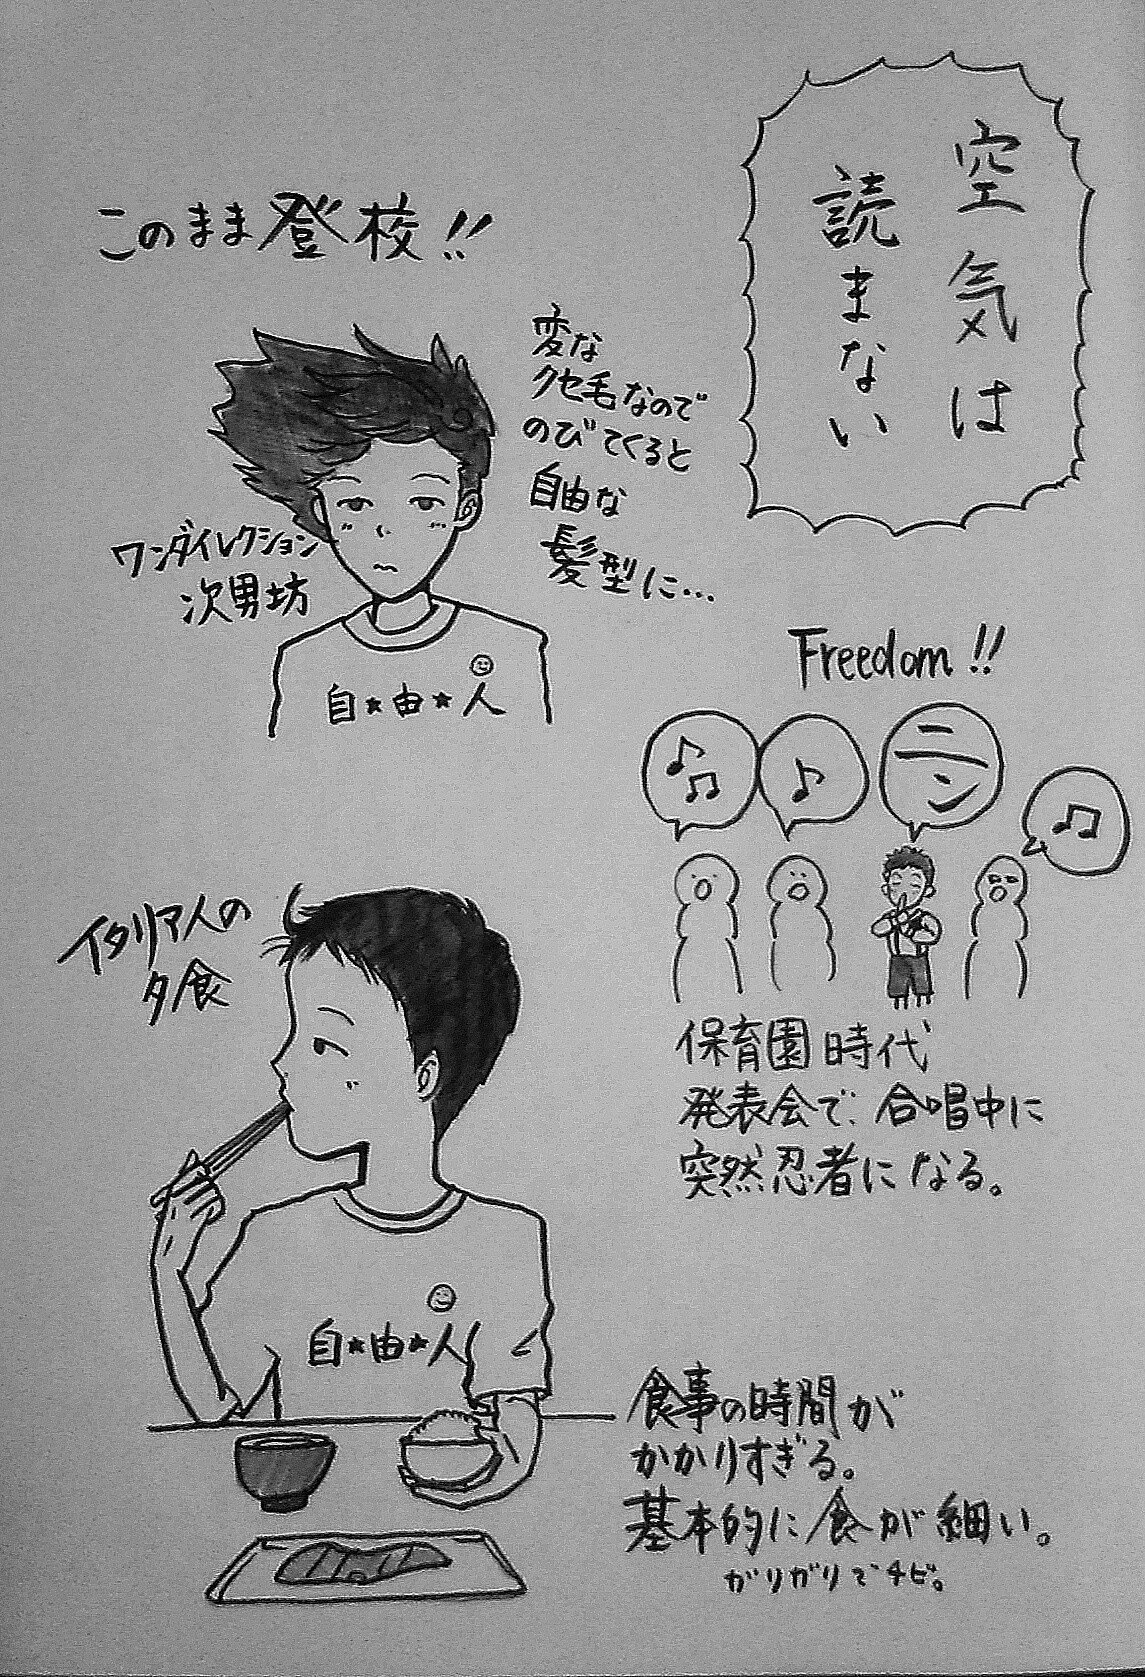 空気は
読まない
このまま登校!!
変な
クセ毛なので
のびてくると
自由な
髪型に…
ワンダイレクション
次男坊
自★由★人
Freedom!!
♫♫
♪
ニン
♫
保育園時代
発表会で、合唱中に
突然忍者になる。
イタリア人の
夕食
自★由★人
食事の時間が
かかりすぎる。
基本的に食が細い。
ガリガリでチビ。